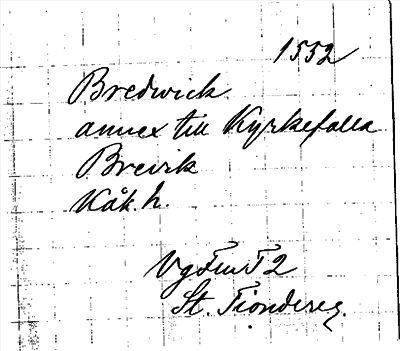 1552
Bredwick
annex till Kyrkefalla
Brevik
Kåk. h.
Vg Fru T 2
St. Tiondereg.